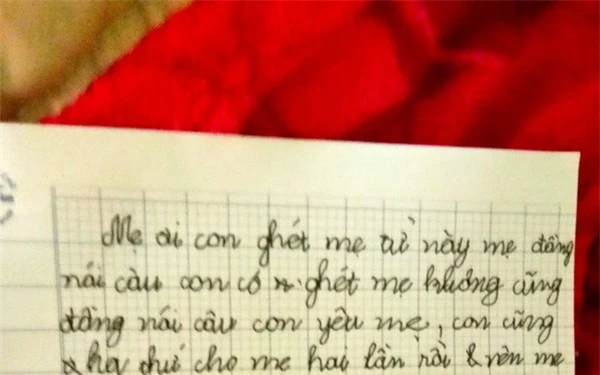 Mẹ ơi con ghét mẹ từ này mẹ đừng
nói câu con có ghét mẹ không cũng
đừng nói câu con yêu mẹ, con cũng
tha thứ cho mẹ hai lần rồi & nên mẹ